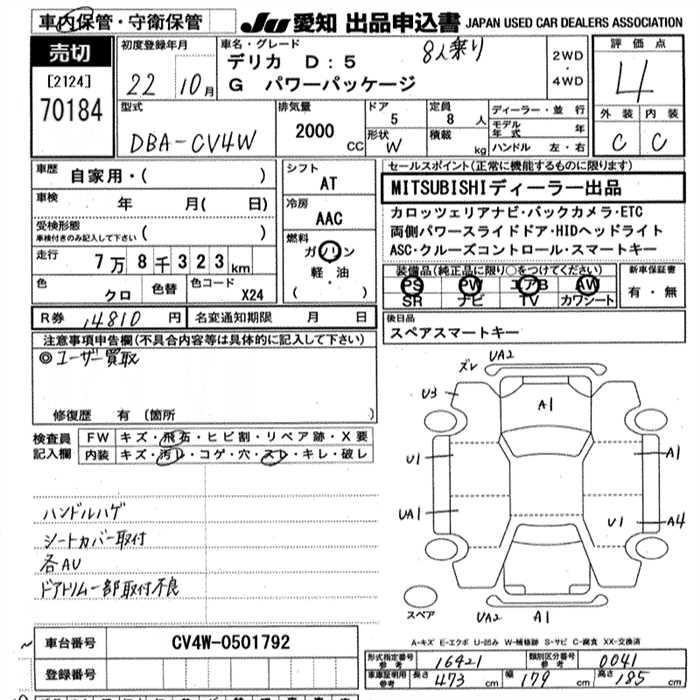 車内保管・守衛保管
JU 愛知 出品申込書 JAPAN USED CAR DEALERS ASSOCIATION
売切
[2124]
70184
初度登録年月
22 10月
車名・グレード
8人乗り
デリカ D:5
G パワーパッケージ
2WD
・
4WD
評価点
4
外装 内装
C C
型式
DBA-CV4W
排気量
2000 CC
ドア
5
形状
W
定員
8 人
積載
kg
ディーラー・並行
モデル年式 年
ハンドル 左・右
車歴
自家用・( )
車検
年 月( 日)
受検形態
車検付きのみ記入して下さい ( )
走行
7万8千323km
色
クロ
色替
色コード
X24
シフト
AT
冷房
AAC
燃料
ガソリン
軽・油
( )
R券 14810 円
名変通知期限 月 日
セールスポイント(正常に機能するものに限ります)
MITSUBISHIディーラー出品
カロッツェリアナビ・バックカメラ・ETC
両側パワースライドドア・HIDヘッドライト
ASC・クルーズコントロール・スマートキー
装備品(純正品に限り○をつけてください)
PS PW エアB AW
SR ナビ TV カワシート
新車保証書
有・無
後日品
スペアスマートキー
注意事項申告欄(不具合内容等は具体的に記入して下さい)
◎ユーザー買取
修復歴 有 (箇所 )
検査員
記入欄
FW キズ・飛石・ヒビ割・リペア跡・X要
内装 キズ・汚レ・コゲ・穴・スレ・キレ・破レ
ハンドルハゲ
シートカバー取付
各AU
ドアトリム一部取付不良
ズレ UA2
U3
A1
U1
A1
UA1
U1 A4
スペア
UA2 A1
A-キズ E-エクボ U-凹み W-補修跡 S-サビ C-腐食 XX-交換済
車台番号 CV4W-0501792
登録番号
形式指定番号
参考
16421
類別区分番号
参考
0041
車庫証明用
参考
長さ 473 cm 幅 179 cm 高さ 185 cm